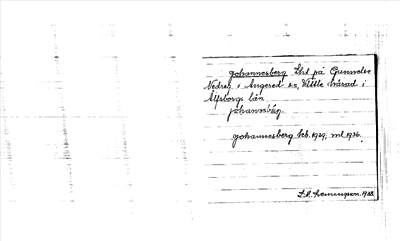 Johannesberg Lht på Gunnulse
Nedreg. i Angered sn, Vättle härad i
Älfsborgs län.
johannsbäg.
Johannesberg Jeb. 1929, ml 1936.
1938.